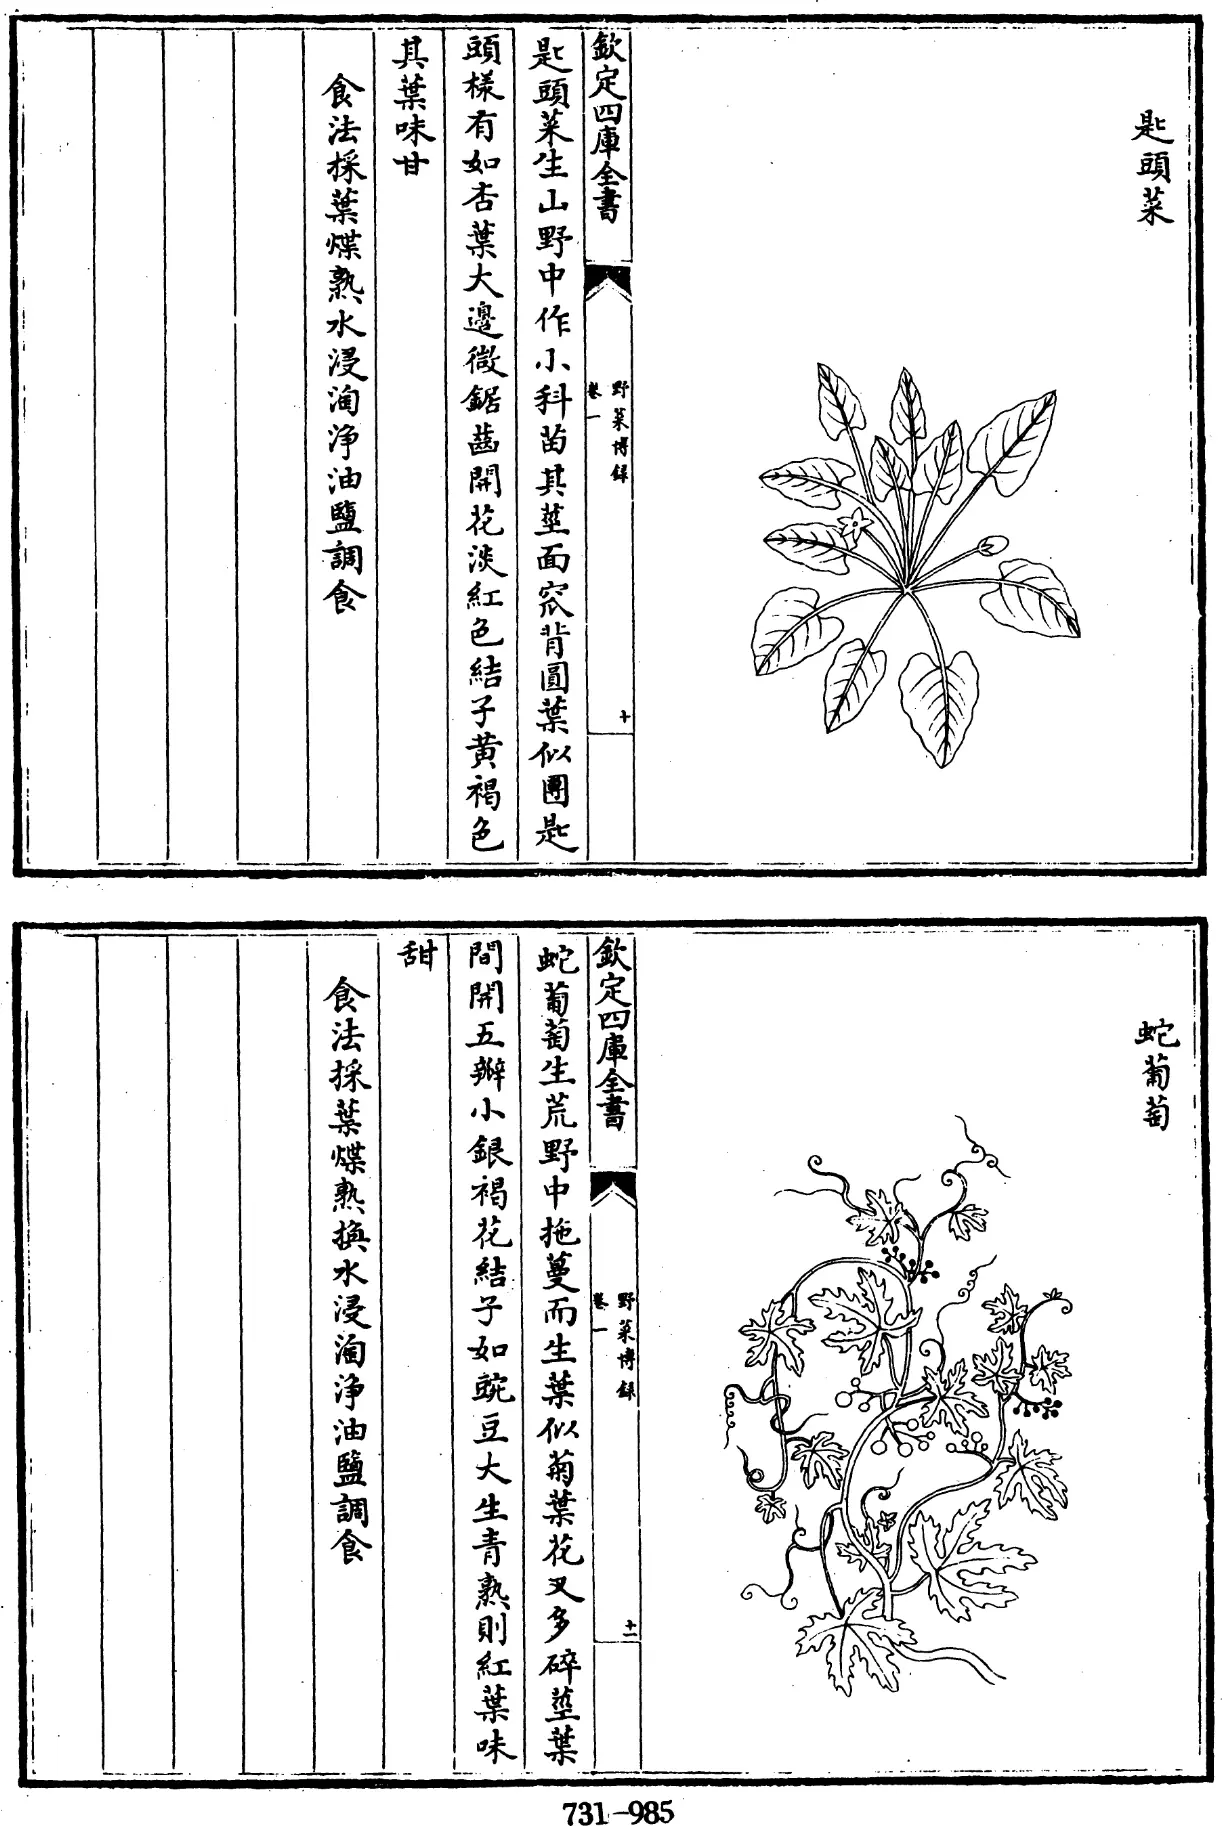 匙頭菜
欽定四庫全書
野菜博錄
卷一
十
匙頭菜生山野中作小科苗其莖面窊背圓葉似團匙
頭樣有如杏葉大邊微鋸齒開花淡紅色結子黃褐色
其葉味甘
食法採葉煠熟水浸淘淨油鹽調食
蛇葡萄
欽定四庫全書
野菜博錄
卷一
十一
蛇葡萄生荒野中拖蔓而生葉似菊葉花叉多碎莖葉
間開五瓣小銀褐花結子如豌豆大生青熟則紅葉味
甜
食法採葉煠熟換水浸淘淨油鹽調食
731-985